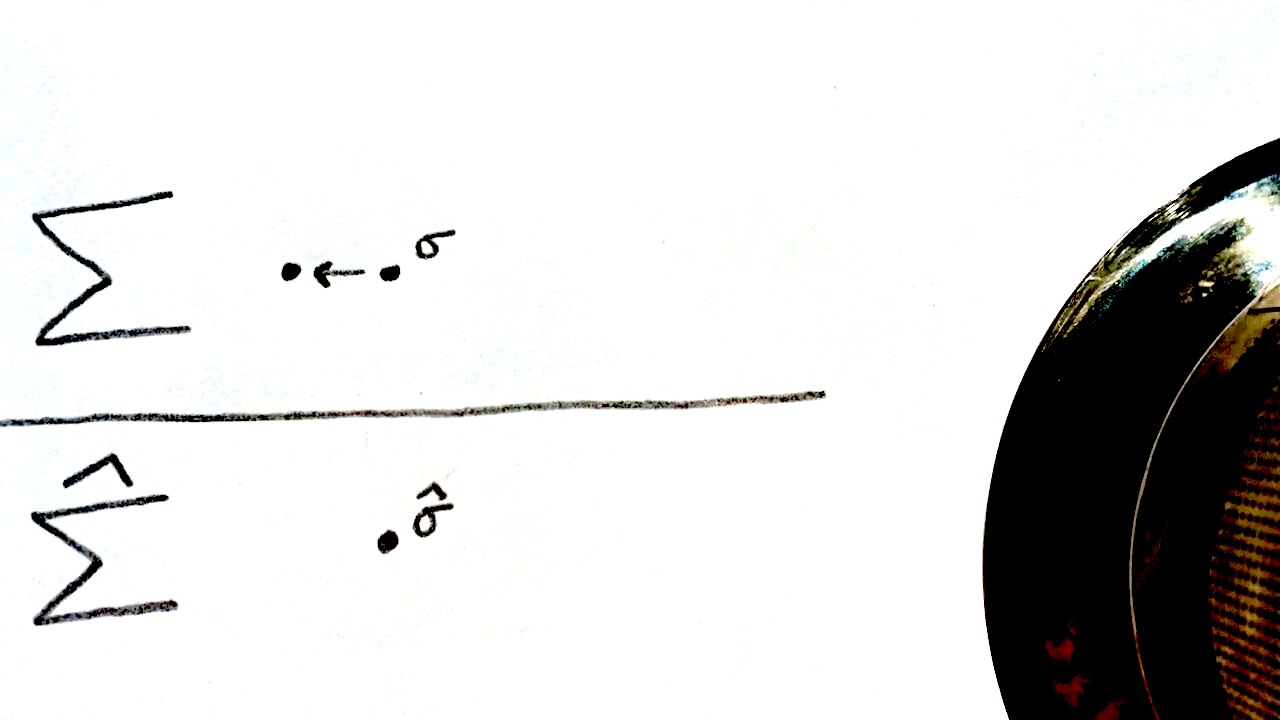 Σ • ← • σ
Σ̂ • σ̂